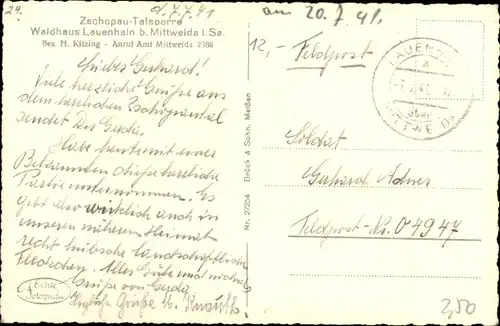 24.
d. 7.7.41
Zschopau-Talsperre
Waldhaus Lauenhain b. Mittweida i. Sa.
Bes. H. Kitzing - Anruf Amt Mittweida 2386
Lieber Gerhard!
Viele herzliche Grüße aus
dem herrlichen Zschopautal
sendet Dir Gerda.
Habe heute mit einer
Bekannten diese herrliche
Partie unternommen. Es
gibt aber wirklich auch in
unseren näheren Heimat
recht hübsche landschaftliche
Fleckchen. Alles Gute und nochmals
Grüße von Gerda
Grüße
Brück & Sohn, Meißen
Nr. 22254
am 20.7.41.
12,-
Feldpost
LAUENHAIN
über
MITTWEIDA
Soldat
Gerhard
Feldpost-Nr. 04947
2,50